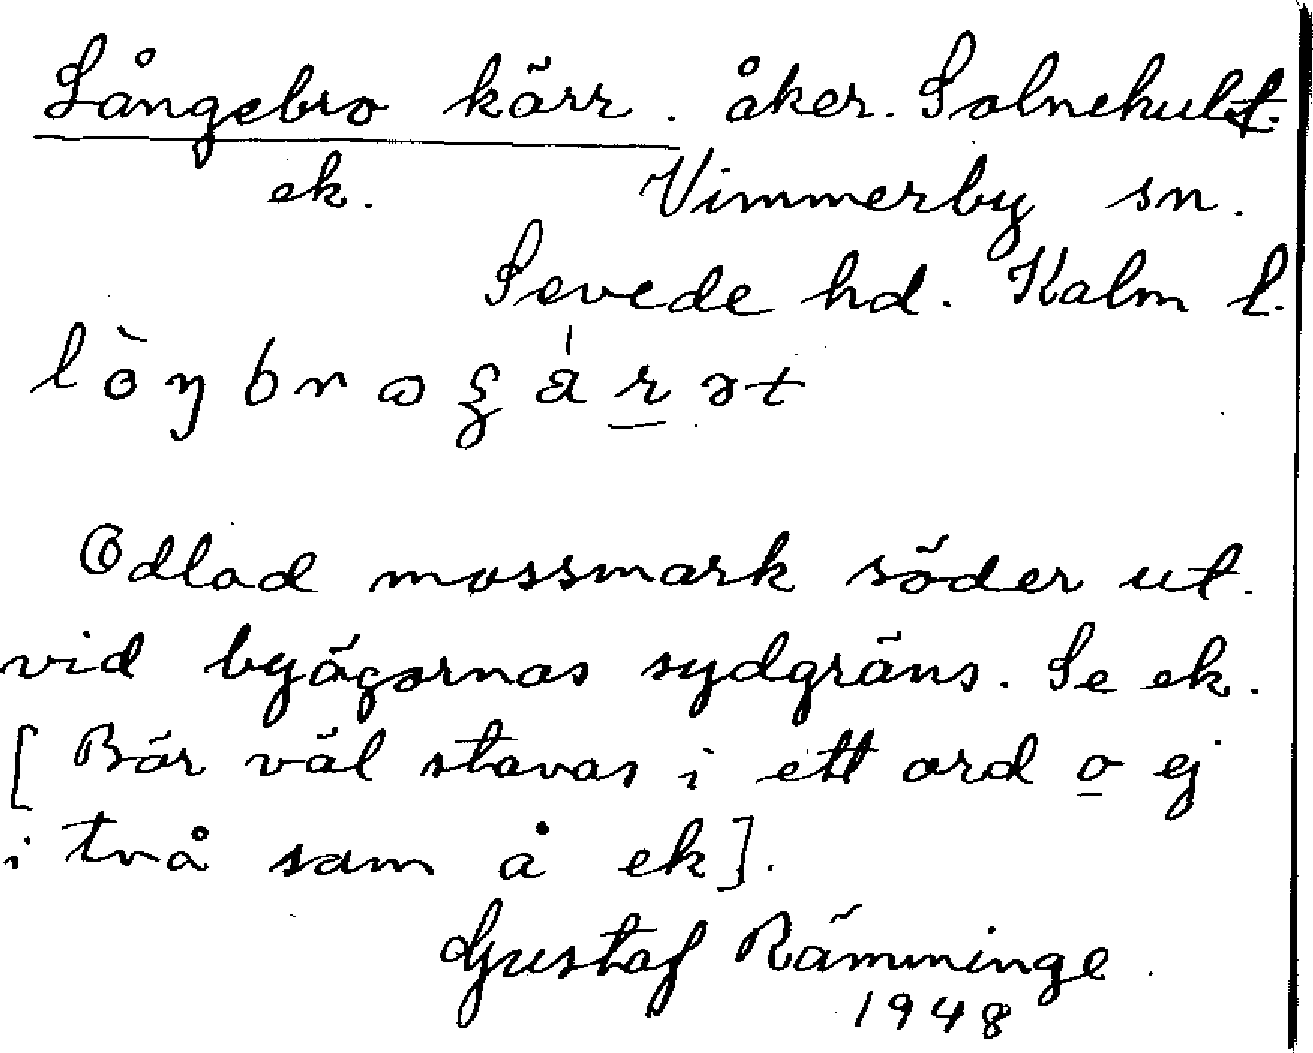 Långebro kärr. åker. Solnehult.
ek. Vimmerby sn.
Sevede hd. Kalm l.
Odlad mossmark söder ut.
vid byägornas sydgräns. Se ek.
[Bör väl stavas i ett ord o ej
i två som å ek].
Gustaf Rämminge.
1948